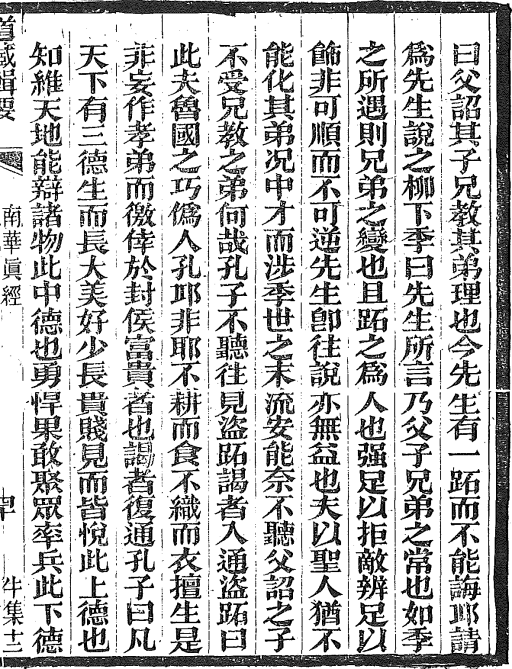 曰父詔其子兄教其弟理也今先生有一跖而不能誨邱請
爲先生說之柳下季曰先生所言乃父子兄弟之常也如季
之所遇則兄弟之變也且跖之爲人也强足以拒敵辨足以
飾非可順而不可逆先生卽往說亦無益也夫以聖人猶不
能化其弟况中才而涉季世之末流安能奈不聽父詔之子
不受兄教之弟何哉孔子不聽往見盜跖謁者入通盜跖曰
此夫魯國之巧僞人孔邱非耶不耕而食不織而衣擅生是
非妄作孝弟而徼倖於封侯富貴者也謁者復通孔子曰凡
天下有三德生而長大美好少長貴賤見而皆悅此上德也
知維天地能辯諸物此中德也勇悍果敢聚眾率兵此下德
道藏輯要
南華眞經
牛集十二